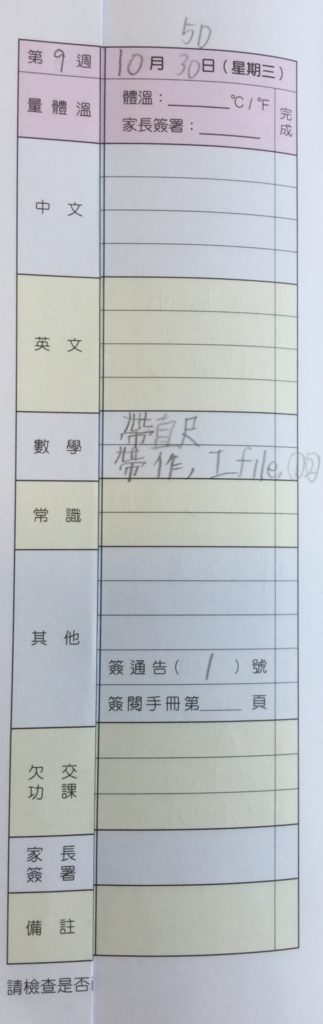 5D
第9週 10月30日(星期三)
量體溫 體溫：______°C/°F 完成
家長簽署：______
中文
英文
數學 帶直尺
帶作, I file
常識
其他
簽通告( 1 )號
簽閱手冊第____頁
欠交功課
家長簽署
備註
請檢查是否